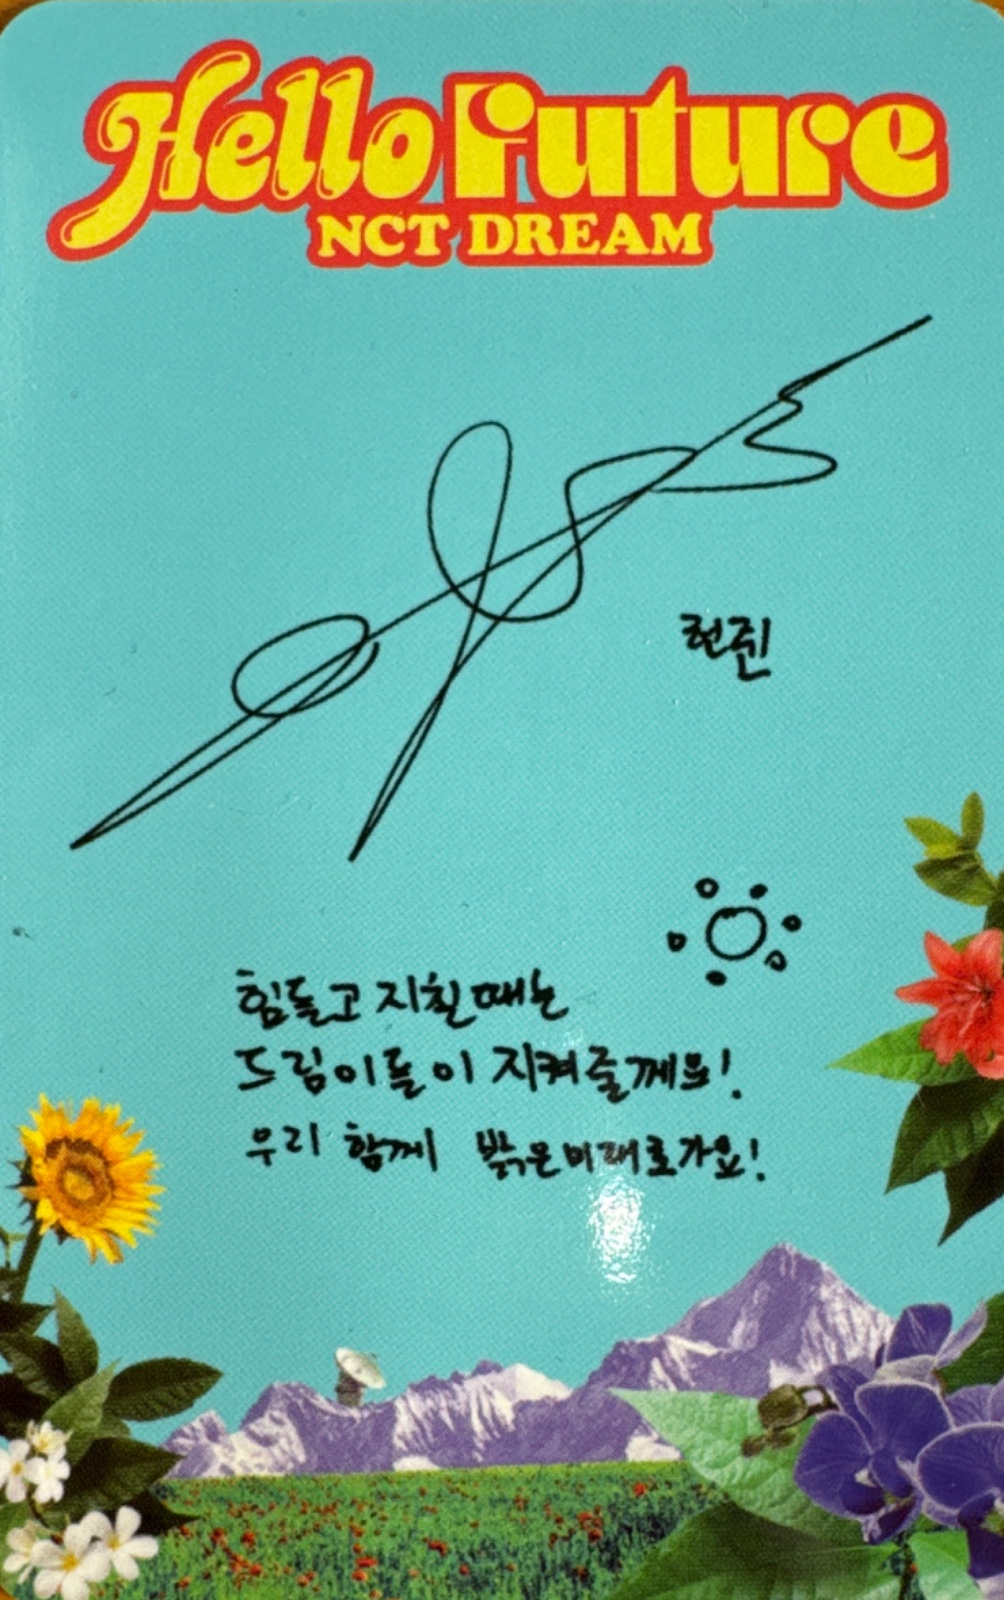 Hello Future
NCT DREAM
런쥔
힘들고 지칠때는
드림이들이 지켜줄께요!
우리 함께 밝은미래로가요!